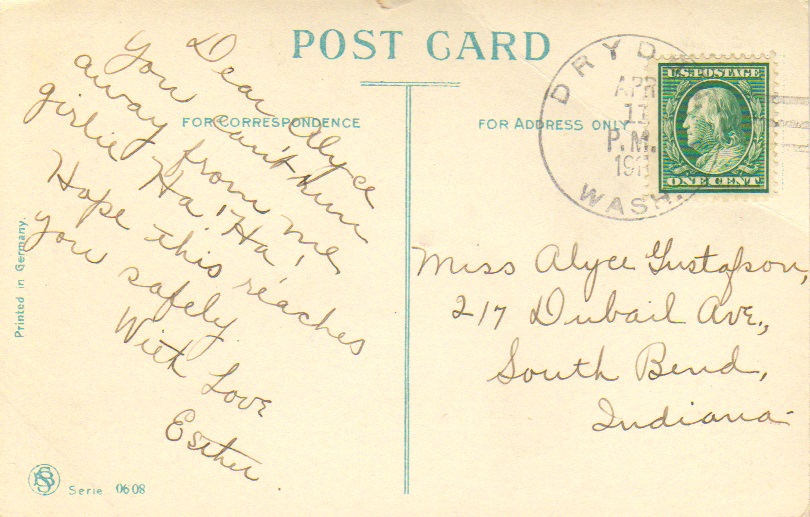 POST CARD
FOR CORRESPONDENCE
FOR ADDRESS ONLY
Dear Alyce
You can't run
away from me
girlie Ha! Ha!
Hope this reaches
you safely.
With Love
Esther.
DRYD
APR
11
P.M.
191
WASH.
U.S. POSTAGE
ONE CENT
Miss Alyce Gustafson,
217 Dubail Ave.,
South Bend,
Indiana
Printed in Germany.
Serie 0608